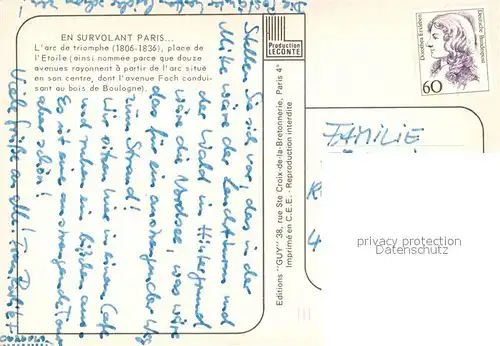 EN SURVOLANT PARIS...
L'arc de triomphe (1806-1836), place de
l'Etoile (ainsi nommée parce que douze
avenues rayonnent à partir de l'arc situé
en son centre, dont l'avenue Foch condui-
sant au bois de Boulogne).
Production
LECONTE
Editions "GUY" 38, rue Ste Croix-de-la-Bretonnerie, Paris 4e
Imprimé en C.E.E. - Reproduction interdite
Dorothea Erxleben
Deutsche Bundespost
60
Stellen Sie sich vor, das in der
Mitte wäre der Leuchtturm und
der Wald im Hintergrund
wäre die Nordsee, was wäre
das für ein anstrengender Weg
zum Strand!
Wir sitzen hier in einem Cafe
und ruhen ein bißchen aus.
Es ist eine anstrengende Tour
aber schön!
Viele Grüße an alle!
FAMILIE
privacy protection
Datenschutz